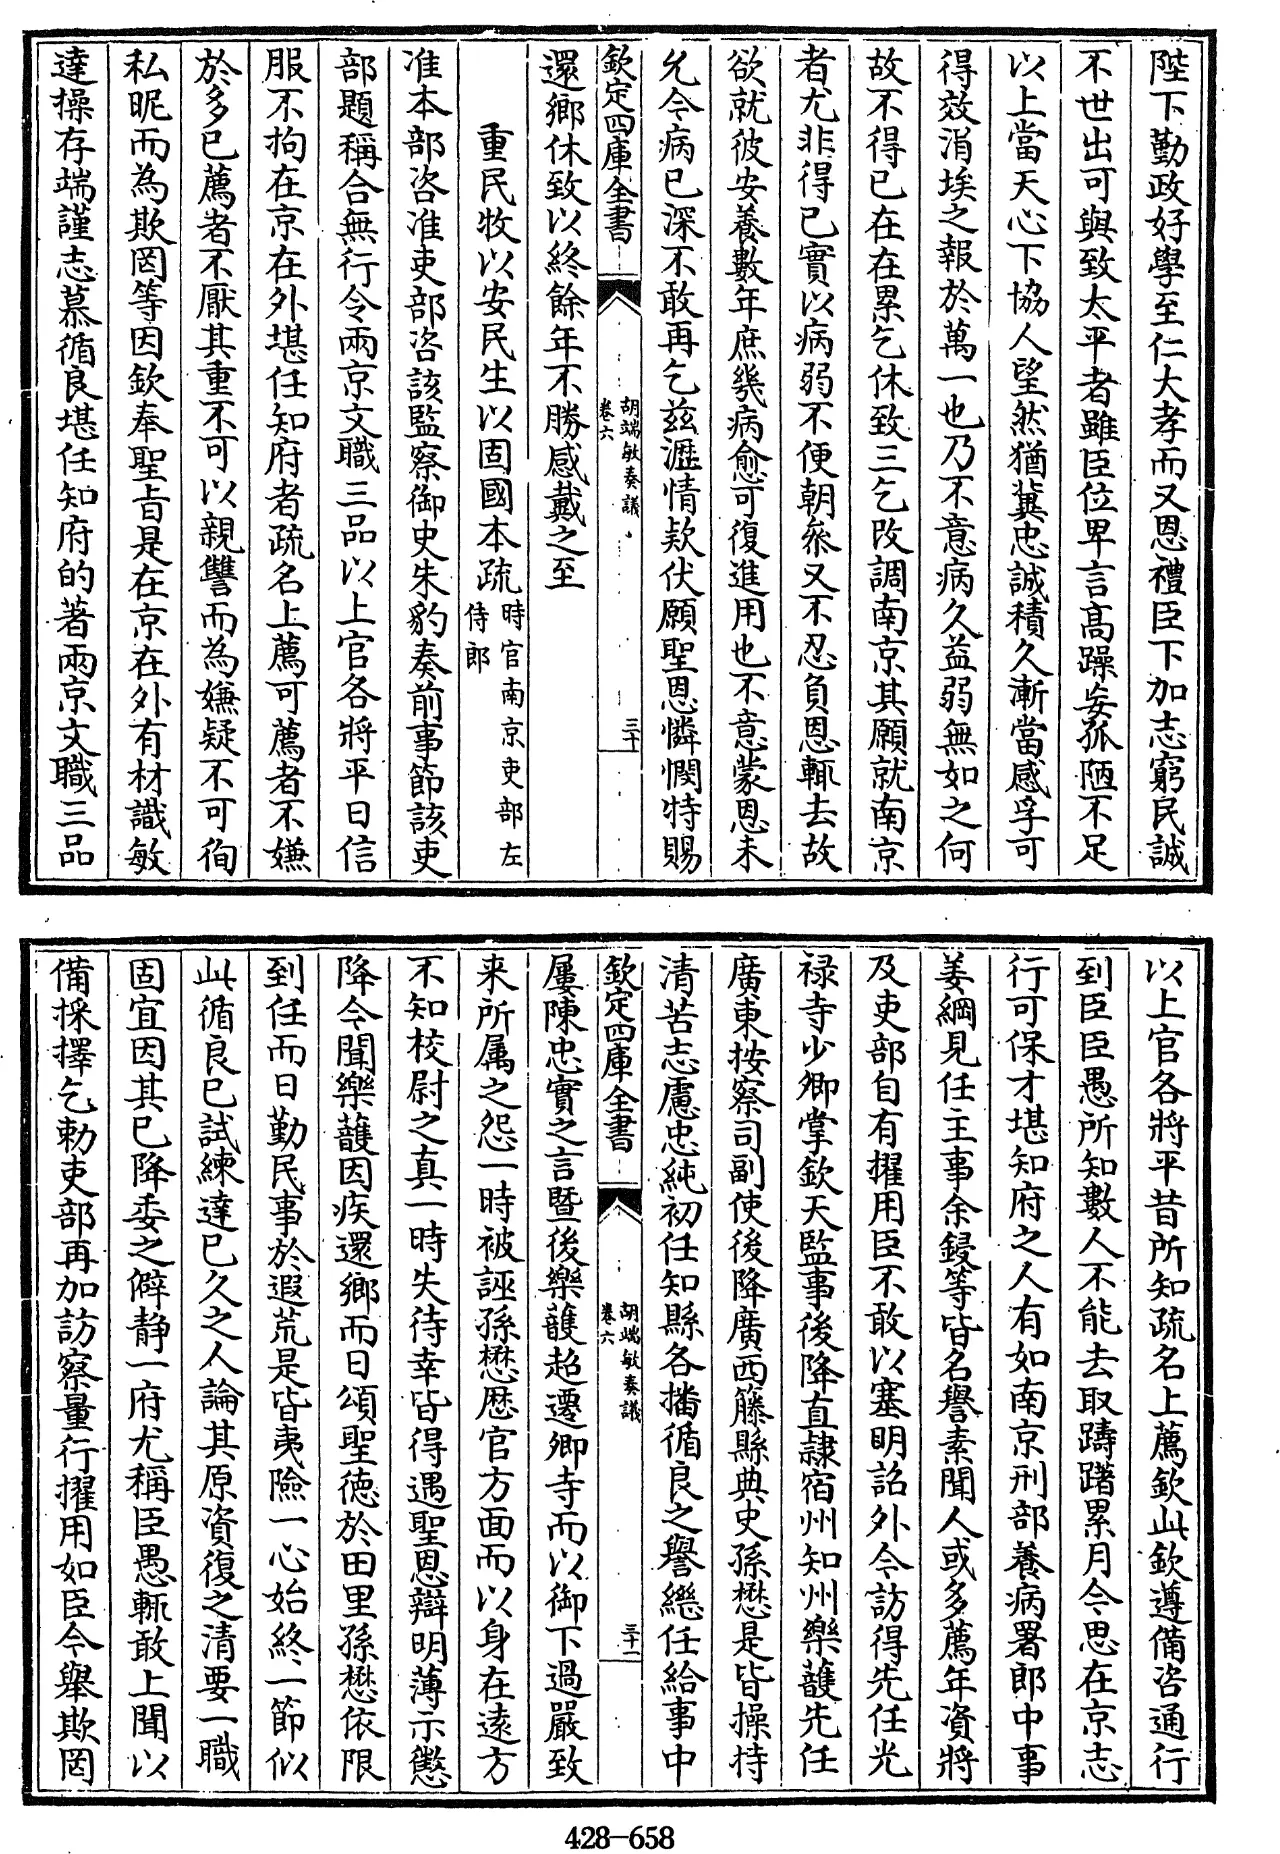 陛下勤政好學至仁大孝而又恩禮臣下加志窮民誠
不世出可與致太平者雖臣位卑言高躁妄孤陋不足
以上當天心下協人望然猶冀忠誠積久漸當感孚可
得效涓埃之報於萬一也乃不意病久益弱無如之何
故不得已在在累乞休致三乞改調南京其願就南京
者尤非得已實以病弱不便朝叅又不忍負恩輒去故
欲就彼安養數年庶幾病愈可復進用也不意蒙恩未
允今病已深不敢再乞兹瀝情欵伏願聖恩憐憫特賜
欽定四庫全書
胡端敏奏議
卷六
三十
還鄉休致以終餘年不勝感戴之至
重民牧以安民生以固國本疏時官南京吏部左
侍郎
准本部咨准吏部咨該監察御史朱豹奏前事節該吏
部題稱合無行令兩京文職三品以上官各將平日信
服不拘在京在外堪任知府者疏名上薦可薦者不嫌
於多已薦者不厭其重不可以親讐而為嫌疑不可徇
私昵而為欺罔等因欽奉聖旨是在京在外有材識敏
達操存端謹志慕循良堪任知府的著兩京文職三品
以上官各將平昔所知疏名上薦欽此欽遵備咨通行
到臣臣愚所知數人不能去取躊躇累月今思在京志
行可保才堪知府之人有如南京刑部養病署郎中事
姜綱見任主事余鋟等皆名譽素聞人或多薦年資將
及吏部自有擢用臣不敢以塞明詔外今訪得先任光
禄寺少卿掌欽天監事後降直隷宿州知州樂頀先任
廣東按察司副使後降廣西籐縣典史孫懋是皆操持
清苦志慮忠純初任知縣各播循良之譽繼任給事中
欽定四庫全書
胡端敏奏議
卷六
三十一
屢陳忠實之言暨後樂頀超遷卿寺而以御下過嚴致
来所属之怨一時被誣孫懋歴官方面而以身在遠方
不知校尉之真一時失待幸皆得遇聖恩辯明薄示懲
降今聞樂頀因疾還鄉而日頌聖徳於田里孫懋依限
到任而日勤民事於遐荒是皆夷險一心始終一節似
此循良已試練達已久之人論其原資復之清要一職
固宜因其已降委之僻静一府尤稱臣愚輒敢上聞以
備採擇乞勅吏部再加訪察量行擢用如臣今舉欺罔
428-658